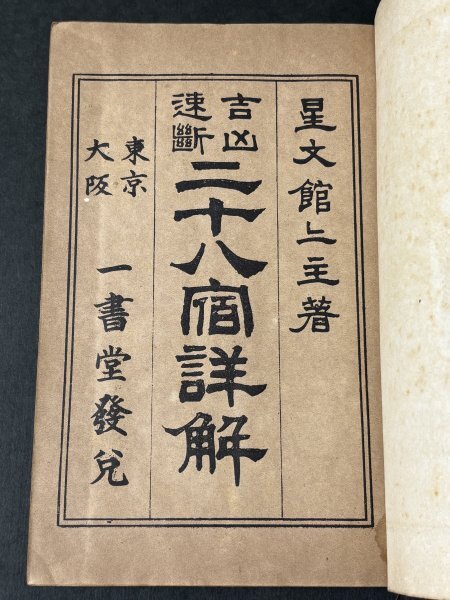 星文館上主著
吉凶
速斷
二十八宿詳解
東京
大阪
一書堂發兌